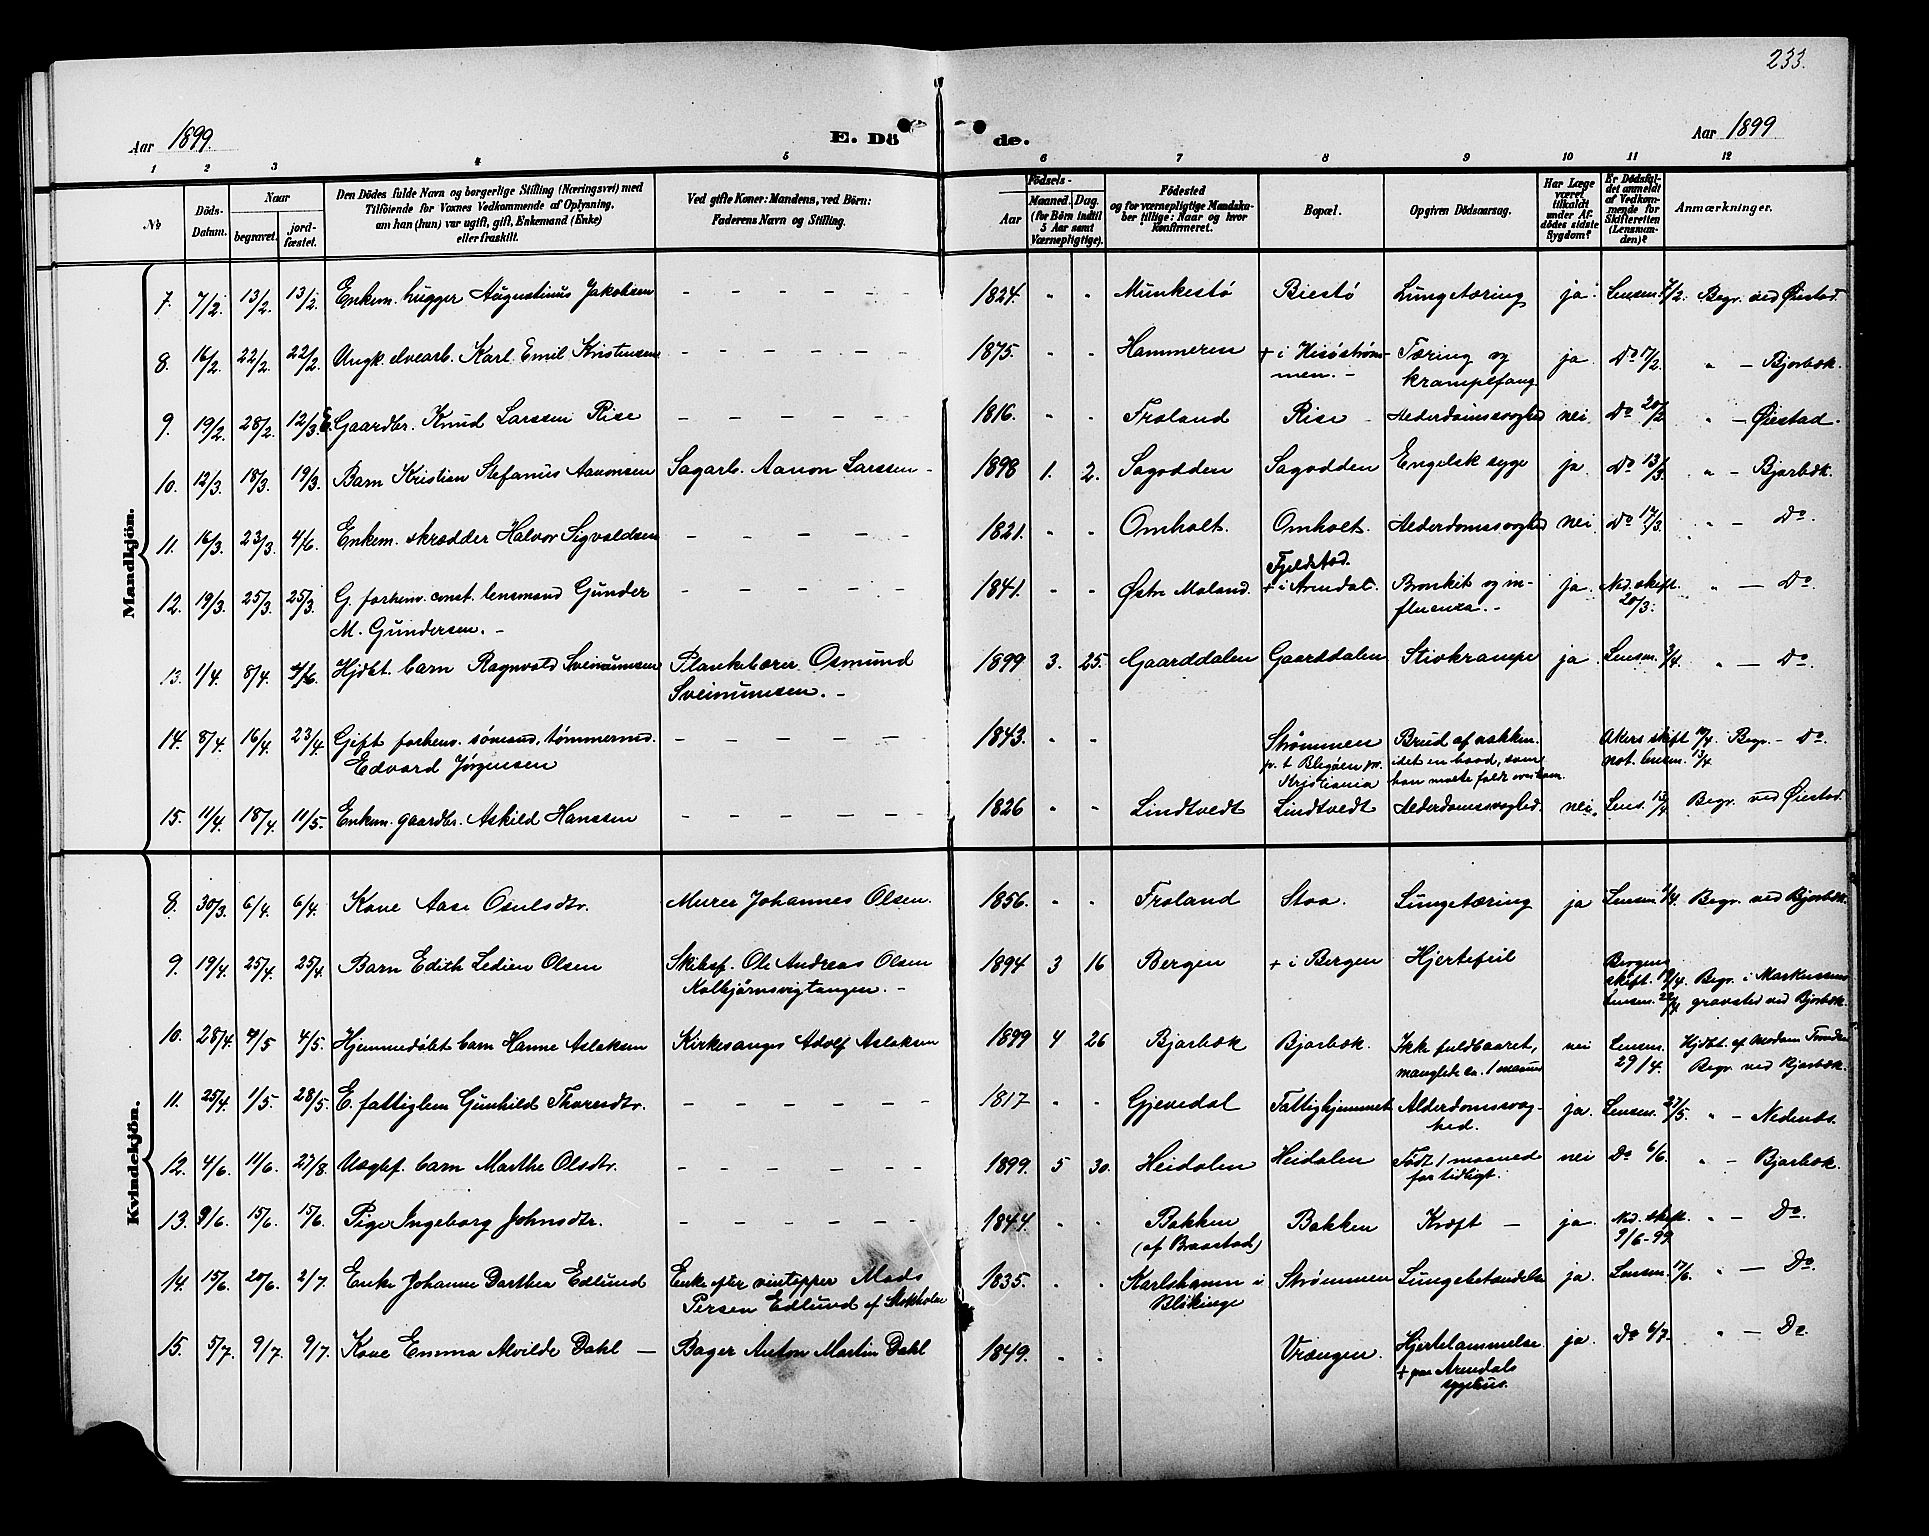 233.
Aar 1899. E. Dö de. Aar 1899
1 2 3 4 5 6 7 8 9 10 11 12
No
Döds-Datum.
Naar
begravet.
jord-fæstet.
Den Dödes fulde Navn og borgerlige Stilling (Næringsvei) med
Tilföiende for Voxnes Vedkommende af Oplysning,
om han (hun) var ugift, gift, Enkemand (Enke)
eller fraskilt.
Ved gifte Koner: Mandens, ved Börn:
Faderens Navn og Stilling.
Födsels-
Aar
Maaned. Dag.
(for Börn indtil
5 Aar samt
Værnepligtige).
Födested
og for værnepligtige Mandska-
ber tillige: Naar og hvor
Konfirmeret.
Bopæl.
Opgiven Dödsaarsag.
Har Læge
været
tilkaldt
under Af-
dödes sidste
Sygdom?
Er Dödsfal-
det anmeldt
af Vedkom-
mende for
Skifteretten
(Lensman-
den)?
Anmærkninger.
Mandkjön.
7. 7/2. 13/2. 13/2. Enkem. hugger Augustinus Jakobsen – – – – – 1824. " " Munkestø Biestø Lungetæring ja. Lensm. 7/2. Begr. ved Øiestad.
8. 16/2. 22/2. 22/2. Ungk. elvearb. Karl Emil Kristensen – – – – – 1875. " " Hammeren + i Hisöstrøm-
men. – Tæring og
krampefang ja. Do 17/2. " – Bjorbæk.
9. 19/2. 28/2. 12/3. Gaardbr. Knud Larssen Rise – – – – – 1816. " " Froland Rise Alderdomssvaghed nei Do 20/2 " – Øiestad.
10. 12/3. 18/3. 19/3. Barn Kristian Stefanus Aanonsen Sagarb. Aanon Larssen – 1898 1. 2. Sagodden Sagodden Engelsk syge ja. Do 13/3. " – Bjorbæk.
11. 16/3. 23/3. 4/6. Enkem. skrædder Halvor Sigvaldsen – – – – – 1821. " " Omholt. Omholt. Alderdomssvaghed nei Do 17/3. " – Do.
12. 19/3. 25/3. 25/3. G. forhenv. const. lensmand Gunder
M. Gundersen. – – – – – – 1841. " " Østre Moland. Fjeldstad.
+ i Arendal. Bronkit og in-
fluenza. – ja. Ned. skift.
20/3. " – Do
13. 1/4. 8/4. 4/6. Hjdbt. barn Ragnvald Sveinumsen Plankebærer Osmund
Sveinumsen. – 1899 3. 25. Gaarddalen Gaarddalen Stivkrampe ja Lensm. 3/4. " – Do.
14. 8/4. 16/4. 23/4. Gift forhenv. sømand, tømmermd.
Edvard Jørgensen – – – – – 1843. " " Strømmen
Kristiania Brud af nakken.
idet en baad, som
han malte faldt over ham. Akers skift 10/4.
not. lensm. 13/4 Begr. – Do.
15. 11/4. 18/4. 11/5. Enkem. gaardbr. Askild Hanssen – – – – – 1826 " " Lindtvedt Lindtvedt Alderdomssvaghed. nei. Lens. 13/4 Begr. ved Øiestad.
Kvindekjön.
8. 30/3. 6/4. 6/4. Kone Aase Osulsdtr. Murer Johannes Olsen. 1856. " " Froland Stoa Lungetæring ja Lensm. 4/4. Begr. ved Bjorbæk.
9. 19/4. 25/4. 25/4 Barn Edith Ledien Olsen Skibsf. Ole Andreas Olsen
Kolbjørnsvigtangen. – 1894 3 16 Bergen + i Bergen Hjertefeil Bergens
skift. 19/4.
Lensm. 22/4 Begr. i Markussens
gravsted ved Bjorbæk.
10. 28/4. 4/5 4/5. Hjemmedøbt barn Hanne Aslaksen Kirkesanger Adolf Aslaksen 1899 4 26 Bjorbæk Bjorbæk. Ikke fuldbaaret,
manglede ca. 1 maaned nei Lensm.
29/4. Hjdbt. af Madam
Begr. ved Bjorbæk.
11. 25/4. 1/5. 28/5. E. fattiglem Gunhild Thoresdtr. – – – – – 1817 " " Gjevedal Fattighjemmet Alderdomssvag-
hed. ja. Lensm. 27/5. " – Nedenes.
12. 4/6. 11/6. 27/8. Uægtef. barn Marthe Olsdtr. – – – – – 1899. 5 30. Heidalen Heidalen Født 1 maaned
for tidligt. nei Do 6/6. " – Bjorbæk.
13. 9/6. 15/6. 15/6. Pige Ingeborg Johnsdtr. – – – – – 1844. " " Bakken
(af Braastad) Bakken Kræft – ja. Ned. skift.
9/6–99 " – Do.
14. 15/6. 20/6. 2/7. Enke Johanne Dorthea Edlund Enke efter vintapper Mads
Persen Edlund af Stokholm 1835. " " Karlshamn i
Blekinge Strømmen Lungebetændelse ja. Lensm. 17/6. " – Do.
15. 5/7. 9/7. 9/7. Kone Emma Alvilde Dahl – Bager Anton Martin Dahl 1849. " " Vrængen. Hjertelammelse
+ paa Arendals
sygehus. ja. Do 6/7. " – Do.